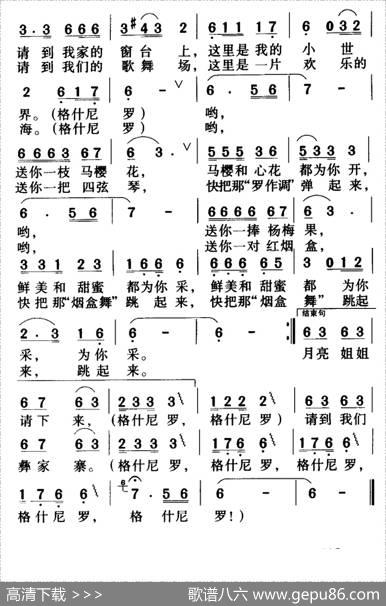 3·3 666 3#43 2 611 17 6 032
请到我家的窗台上，这里是我的小世
请到我们的歌舞场，这里是一片欢乐的
2 617 6 - ∨ 6 · 56 7 -
界。(格什尼罗)哟，
海。(格什尼罗)哟，
6663 67 6 3· ∨ 555 35 336
送你一枝马樱花，马樱和心花都为你开，
送你一把四弦琴，快把那“罗作调”弹起来，
6 · 56 7 - 6666 67 6 3
哟，送你一捧杨梅果，
哟，送你一对红烟盒，
331 23 166 6 666 65 3 32
鲜美和甜蜜都为你采，鲜美和甜蜜都为你
快把那“烟盒舞”跳起来，快把那“烟盒舞”跳起
2·3 16 6 - 6 - 结束句 63 63
采，为你采。月亮姐姐
来，跳起来。
67 63 233 3 233 3 63 63
请下来，(格什尼罗，格什尼罗)请到我们
67 63 233 3 176 6 176 6
彝家寨。(格什尼罗，格什尼罗，格什尼罗，
1 76 6 7·56 6 - 6 -
格什尼罗，格什尼罗！)
高清下载 >>> 歌谱八六 www.gepu86.com